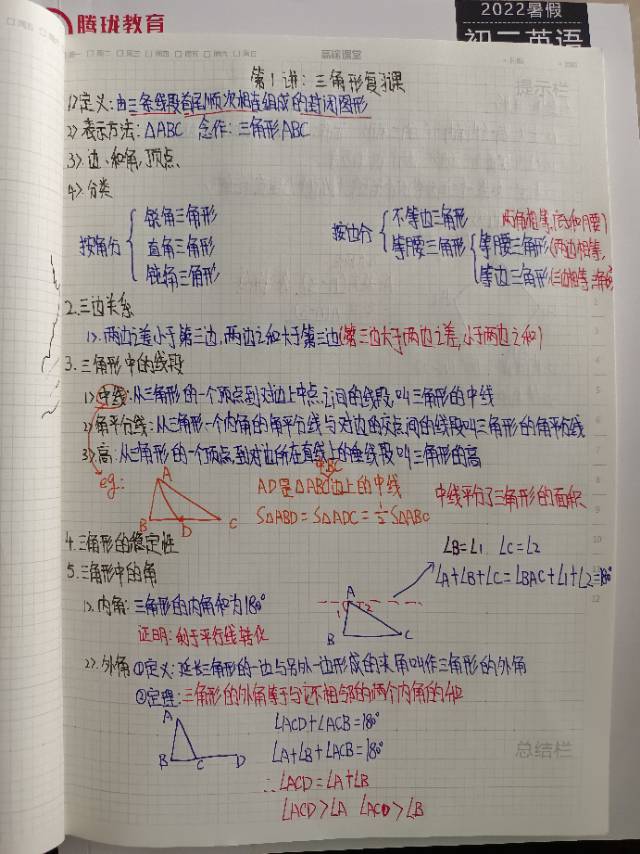 腾珑教育
2022暑假
初二英语
高途课堂
提示栏
第1讲：三角形复习课
1>定义：由三条线段首尾顺次相连组成的封闭图形
2>表示方法：△ABC 念作：三角形ABC
3>边、和角、顶点、
4>分类
按角分
锐角三角形
直角三角形
钝角三角形
按边分
不等边三角形
等腰三角形
等腰三角形(两边相等,
两角相等,底和腰)
等边三角形(三边相等
2.三边关系
1>.两边之差小于第三边,两边之和大于第三边(第三边大于两边之差,小于两边之和)
3.三角形中的线段
1>中线:从三角形的一个顶点到对边上中点之间的线段,叫三角形的中线
2>角平分线:从三角形一个内角的角平分线与对边的交点间的线段叫三角形的角平分线
3>高:从三角形的一个顶点,到对边所在直线上的垂线段叫三角形的高
eg:
A
B
D
C
中BC
AD是△ABC边上的中线
S△ABD=S△ADC=½S△ABC
中线平分了三角形的面积
4.三角形的稳定性
5.三角形中的角
∠B=∠1 ∠C=∠2
∠A+∠B+∠C=∠BAC+∠1+∠2=180°
1>.内角:三角形的内角和为180°
证明:利于平行线转化
A
1
2
B
C
2>.外角①定义:延长三角形的一边与另外一边形成的夹角叫作三角形的外角
②定理:三角形的外角等于与它不相邻的两个内角的和
A
B
C
D
∠ACD+∠ACB=180°
∠A+∠B+∠ACB=180°
∴∠ACD=∠A+∠B
∠ACD>∠A ∠ACD>∠B
总结栏